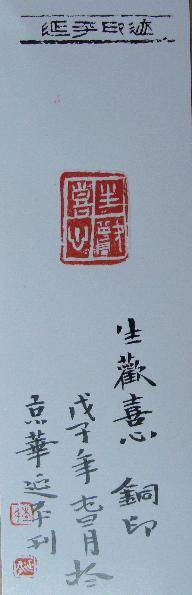 延平印迹
生歡
喜心
生歡喜心 銅印
戊子年月於
京華延平刊